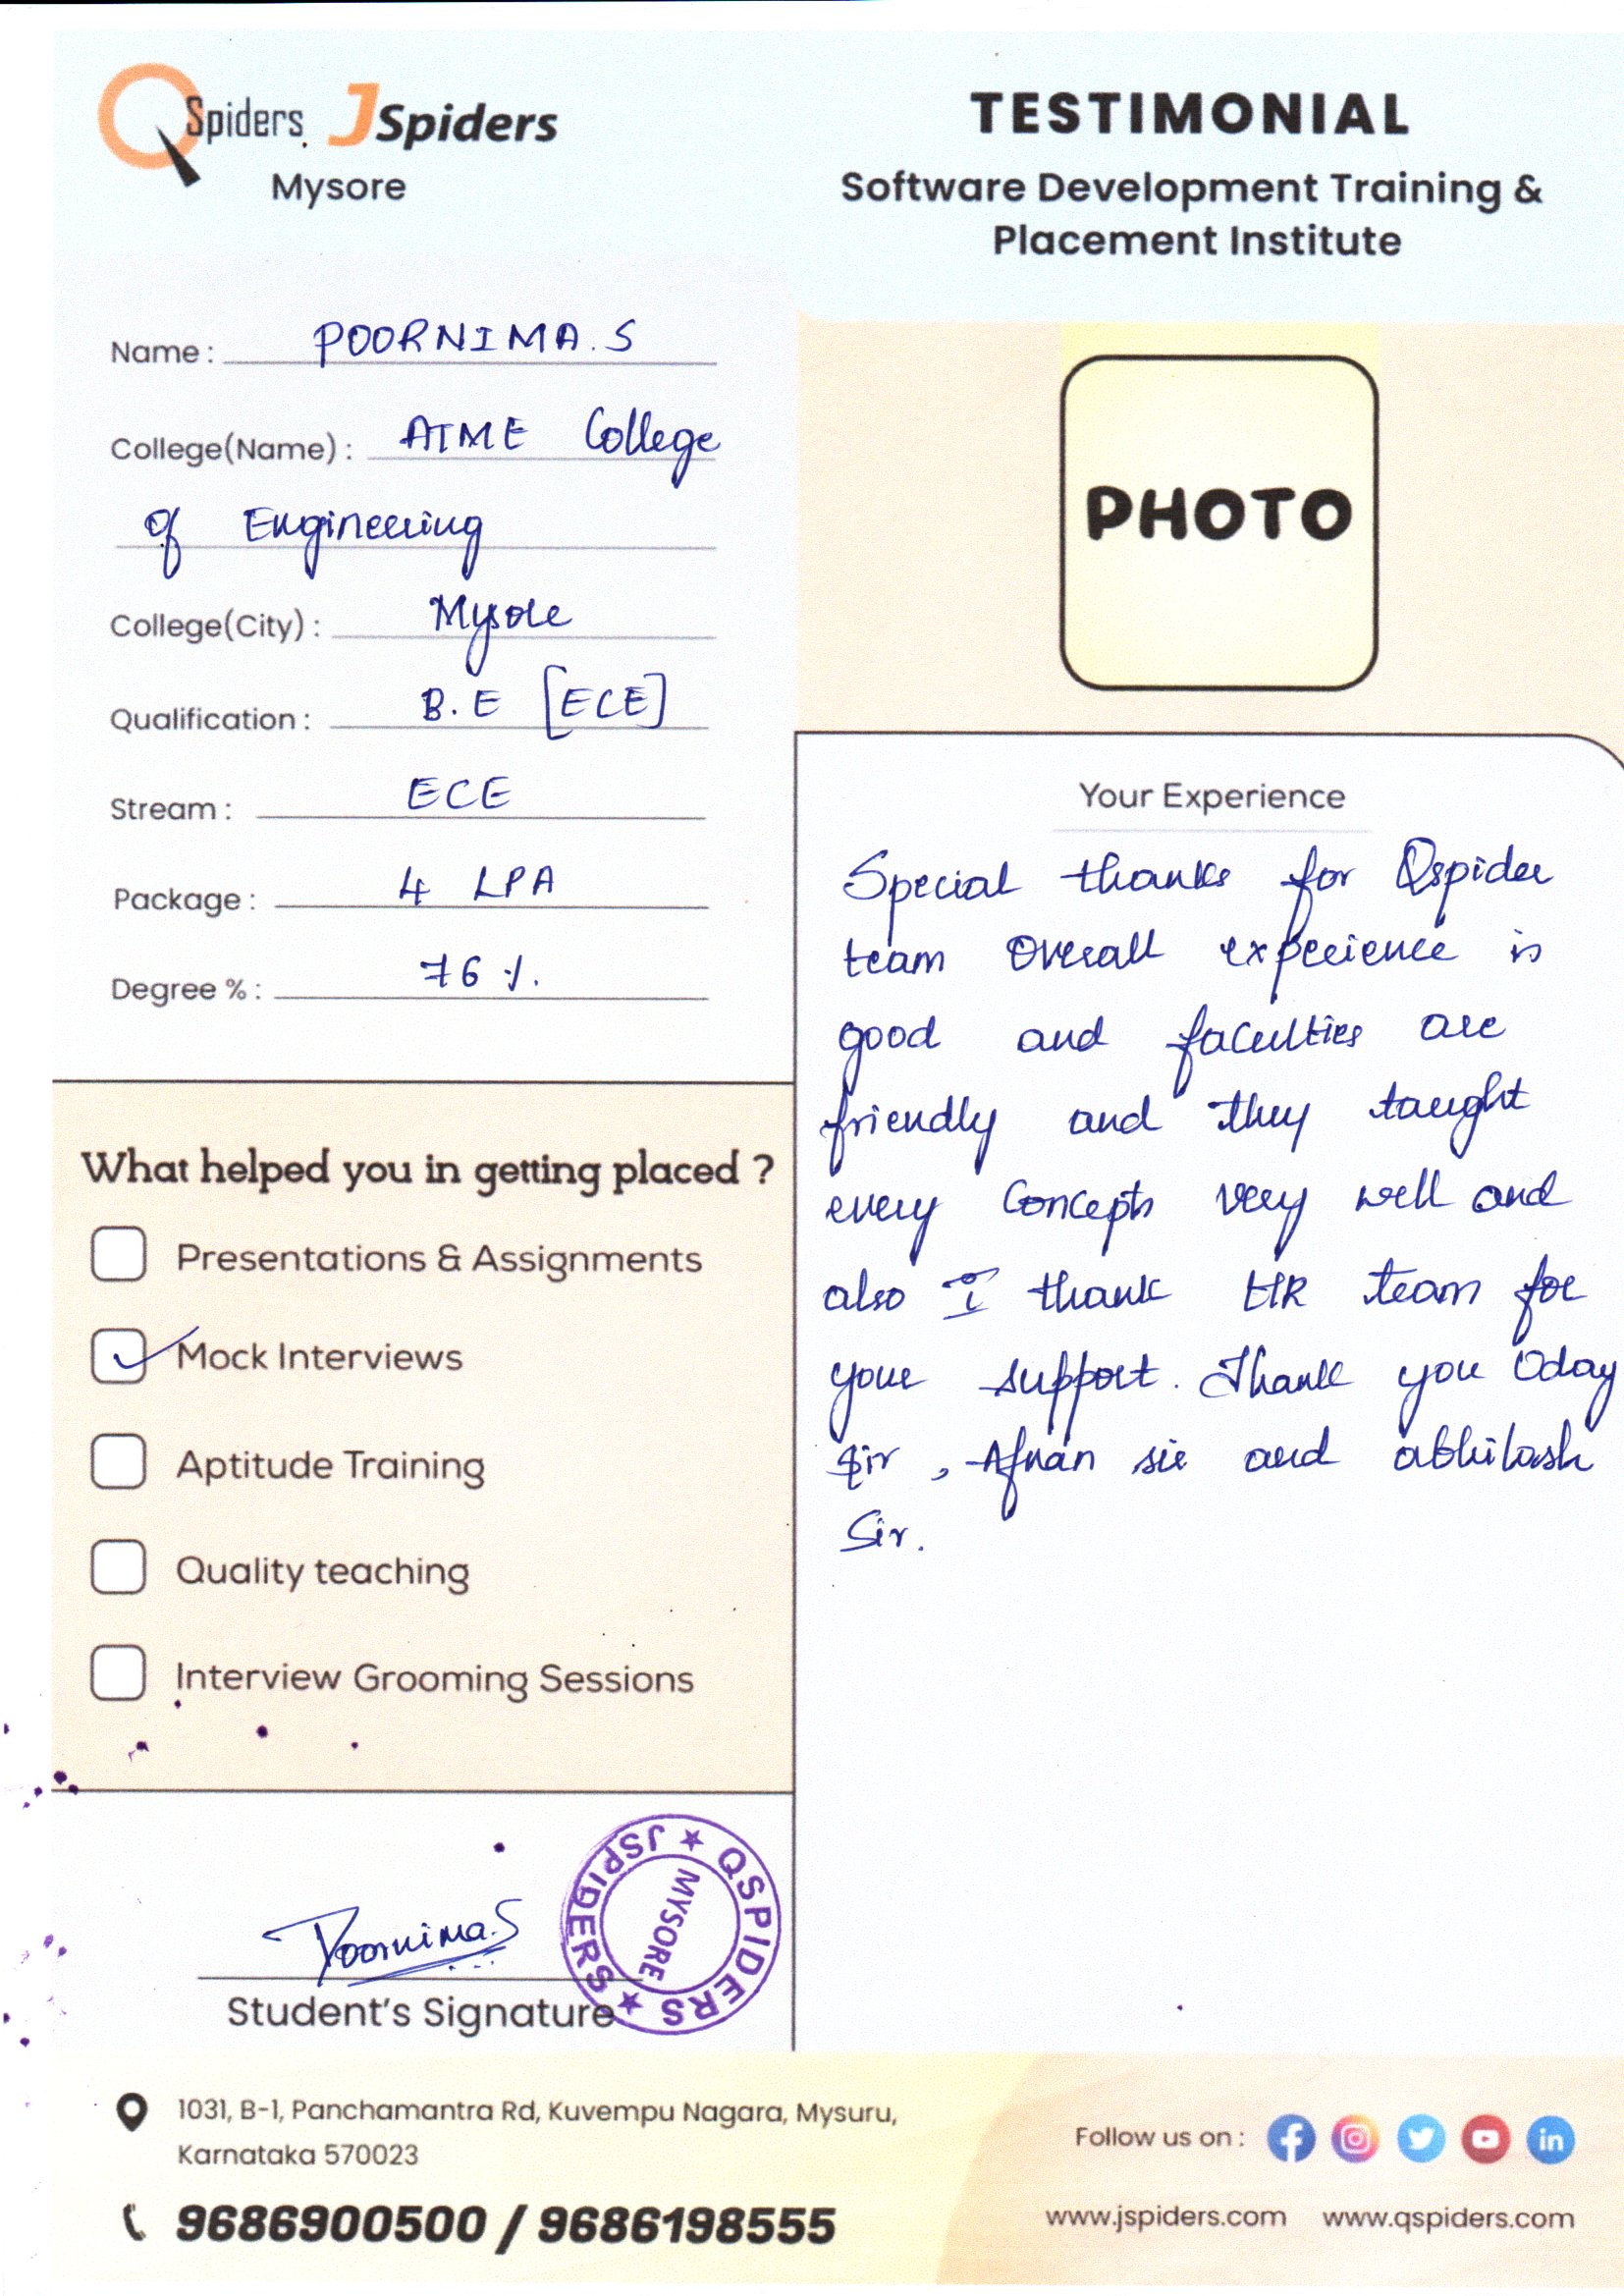 QSpiders JSpiders
Mysore
TESTIMONIAL
Software Development Training &
Placement Institute
Name : POORNIMA.S
College(Name) : ATME College
of Engineering
College(City) : Mysore
Qualification : B.E [ECE]
Stream : ECE
Package : 4 LPA
Degree % : 76 %.
PHOTO
What helped you in getting placed ?
Presentations & Assignments
Mock Interviews
Aptitude Training
Quality teaching
Interview Grooming Sessions
Poornima.S
Student's Signature
QSPIDERS ★ JSPIDERS ★
MYSORE
Your Experience
Special thanks for Qspider
team Overall experience is
good and faculties are
friendly and they taught
every Concepts very well and
also I thank HR team for
your support. Thank you Uday
sir, Afnan sir and abhilash
Sir.
1031, B-1, Panchamantra Rd, Kuvempu Nagara, Mysuru,
Karnataka 570023
9686900500 / 9686198555
Follow us on :
www.jspiders.com www.qspiders.com